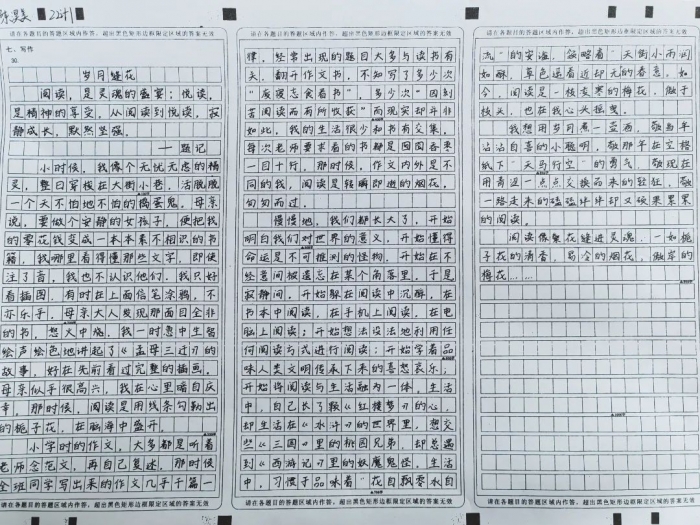 请在各题目的答题区域内作答，超出黑色矩形边框限定区域的答案无效
七、写作
30.
岁月缝花
阅读，是灵魂的盛宴；悦读，
是精神的享受。从阅读到悦读，寂
静成长，默然坚强。
——题记
小时候，我像个无忧无虑的精
灵，整日穿梭在大街小巷，活脱脱
一个天不怕地不怕的捣蛋鬼。母亲
说，要做个安静的女孩子，便把我
的零花钱变成一本本素不相识的书
籍，我哪里看得懂那些文字，即使
注了音，我也不认识他们，我只好
看插图，有时在上面信笔涂鸦，不
亦乐乎，母亲大人发现那面目全非
的书，怒火中烧，我一时急中生智
绘声绘色地讲起了《孟母三迁》的
故事，好在先前看过完整的插画，
母亲似乎很高兴，我在心里暗自庆
幸，那时候，阅读是用线条勾勒出
的栀子花，在脑海中盛开。
小学时的作文，大多都是听着
老师念范文，再自己复述，那时候
全班同学写出来的作文几乎千篇一
请在各题目的答题区域内作答，超出黑色矩形边框限定区域的答案无效
请在各题目的答题区域内作答，超出黑色矩形边框限定区域的答案无效
律，经常出现的题目大多与读书有
关，翻开作文书，不知写了多少次
"废寝忘食看书"，多少次"因刻
苦阅读而有所收获"而现实却并非
如此，我的生活很少和书有交集，
每次老师要求看的书都是囫囵吞枣
一目十行，那时候，作文内外是不
同的我，阅读是轻瞬即逝的烟花，
匆匆而过。
慢慢地，我们都长大了，开始
明白我们对世界的意义，开始懂得
命运是不可推测的怪物，开始在不
经意间被遗忘在某个角落里，于是
寂静间，开始躲在阅读中沉醉，在
书本中阅读，在手机上阅读，在电
脑上阅读；开始想法设法地利用任
何阅读方式进行阅读；开始学着品
味人类文明传承下来的喜怒哀乐；
开始将阅读与生活融为一体，生活
中，自己长了颗《红楼梦》的心，
却生活在《水浒》的世界里，想交
些《三国》里的桃园兄弟，却总遇
到《西游记》里的妖魔鬼怪，生活
中，习惯于品味着"花自飘零水自
请在各题目的答题区域内作答，超出黑色矩形边框限定区域的答案无效
请在各题目的答题区域内作答，超出黑色矩形边框限定区域的答案无效
流"的安谧，领略着"天街小雨润
如酥，草色遥看近却无的春意，如
今，阅读是一枝友枣的梅花，傲于
枝头，也在我心头摇曳。
我想用岁月煮一壶酒，敬当年
沾沾自喜的小聪明，敬那年在空格
纸下"天马行空"的勇气，敬现在
用青涩一点点交换而来的轻狂，敬
一路走来的磕磕绊绊却又硕果累累
的阅读。
阅读像絮花缝进灵魂，一如栀
子花的清香，易冷的烟花，傲岸的
梅花……
请在各题目的答题区域内作答，超出黑色矩形边框限定区域的答案无效